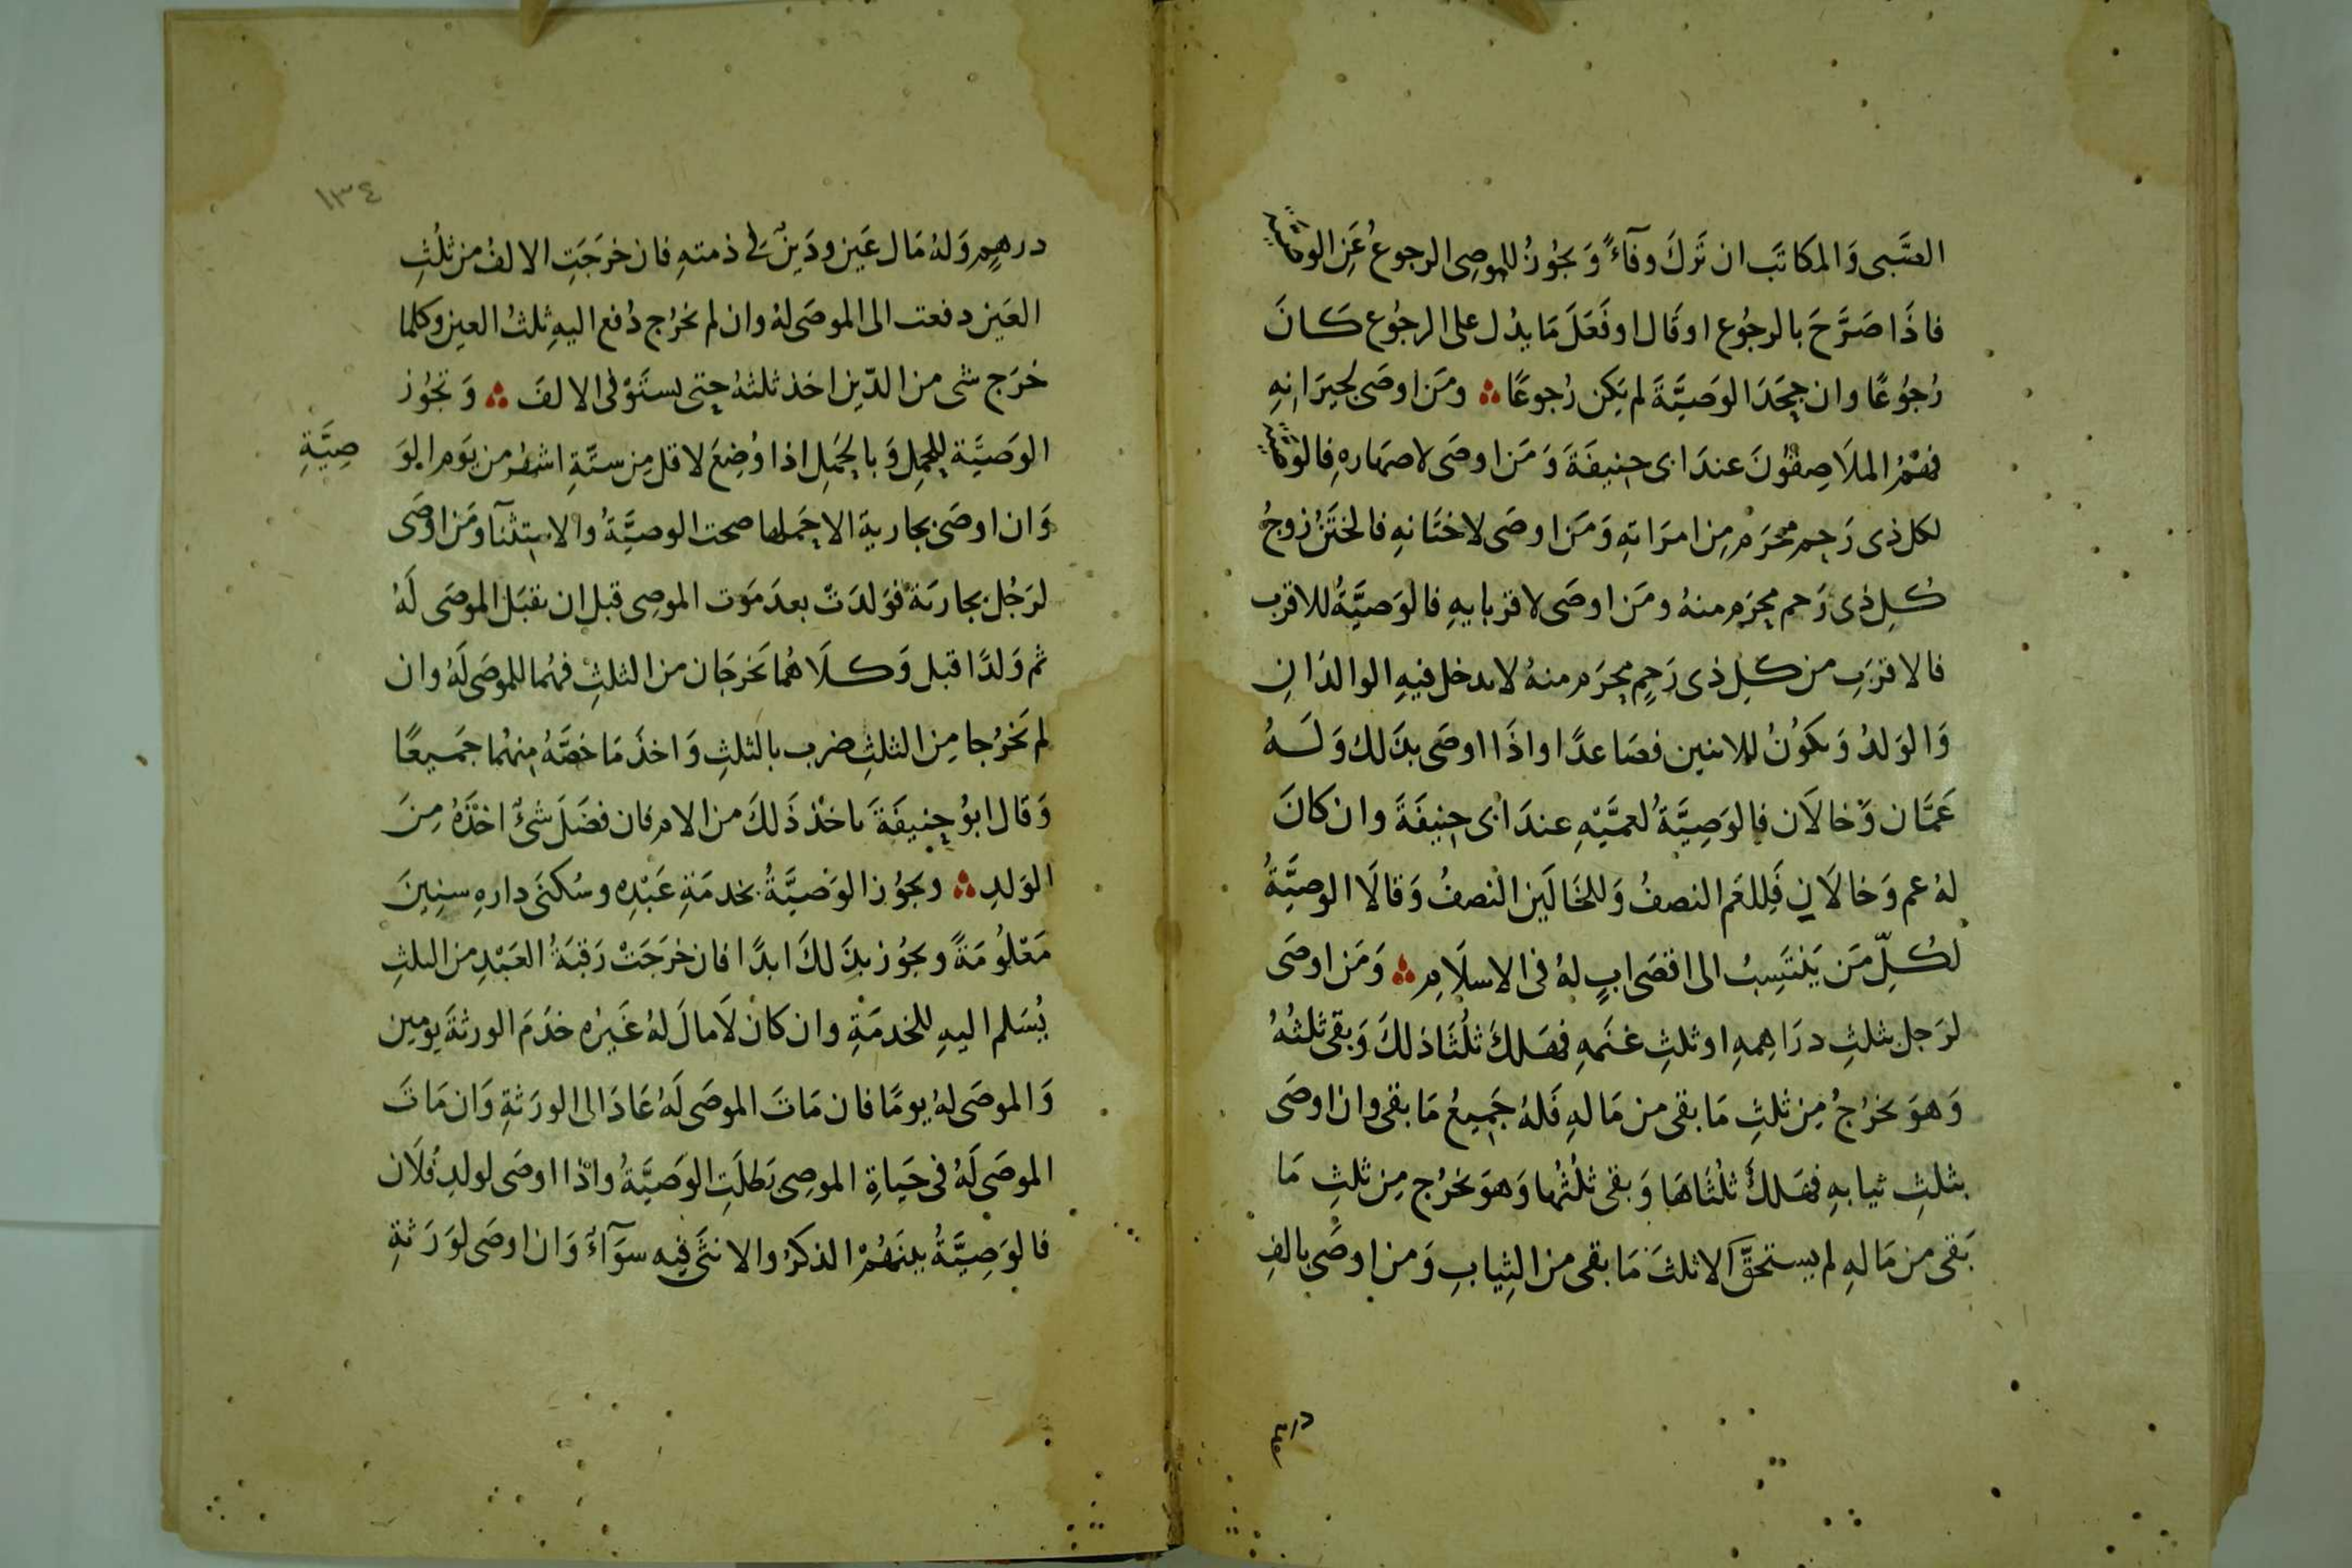 الصَّبى وَالمكاتَب ان تَركَ وفآءً وَيجُوزُ للموصِى الرجوعُ عَنِ الوصية
فاذَا صَرَّحَ بالرجُوع او قَال او فَعَلَ مَا يدُل على الرجُوع كَانَ
رُجُوعًا وان جحَدَ الوَصيَّةَ لم يَكن رُجوعًا ومَن اوصَى لجيرَانِهِ
فهُمُ الملَاصِقُونَ عندَ ابى حنِيفَةَ وَمَن اوصَى لاصهَارهِ فالوصية
لكل ذى رَحِم محرَم مِن امرَاتِهِ وَمَن اوصَى لاختَانهِ فالختَنُ زوجُ
كُلِ ذى رَحم محرَم منهُ ومَن اوصَى لاقربايهِ فالوَصيَّةُ للاقرَب
فالاقرَبِ من كلِ ذى رَحِمٍ محرَم منهُ لا يدخل فيهِ الوالدَانِ
وَالوَلدُ وَيكوُنُ للاثنين فصَاعدًا واذَا اوصَى بذَلك وَلَهُ
عَمَّان وَخالَان فالوَصِيَّةُ لعمَّيْهِ عندَ ابى حنِيفَةَ وان كانَ
لهُ عم وَخالَانِ فَللعَم النصفُ وَللخَالَين النصفُ وَقالَا الوصيَّةُ
لكُلِّ مَن يَنتَسِبُ الى اقصَى ابٍ لهُ فى الاسلَامِ وَمَن اوصَى
لرَجل بثلثِ درَاهِمهِ او ثلثِ غنَمهِ فهَلكَ ثلُثَا ذلكَ وَبقى ثلثُهُ
وَهوَ يخرُجُ مِن ثلثِ مَا بقى من مَالهِ فَلهُ جَمِيعُ مَا بقى وان اوصَى
بثلثِ ثيابهِ فهَلكَ ثلُثَاهَا وَبقى ثلُثُها وَهوَ يخرُج مِن ثلثِ مَا
بَقى من مَالهِ لم يستحقَّ الا ثلثَ مَا بقى من الثِيابِ وَمن اوصَى بالفِ
درهم
١٣٤
درهمٍ وَلهُ مَال عَين ودَينٌ فى ذمتهِ فان خرَجَتِ الالفُ من ثلُثِ
العَين دفعت الى الموصَى لهُ وان لم يخرُج دُفع اليهِ ثلثُ العين وكلما
خرَج شى من الدّين اخذ ثلثهُ حتى يستَوْفى الالفَ وَتجُوز
الوَصيَّة للحمل وَبالحَمل اذا وُضِعَ لاقل مِن ستَّةِ اشهُر من يَوم الوَ
صِيَّةِ
وَان اوصَى بجارية الا حَملها صحت الوصيَّةُ والاستثنآ ومَن اوصَى
لرَجُل بجاريَة فوَلدَتْ بعدَ مَوت الموصِى قبل ان يقبَل الموصَى لَهُ
ثم وَلدًا قبل وَكلَاهُما يَخرجَان من الثلثِ فهُما للموصَى لَهُ وان
لم يَخرُجا مِن الثلثِ ضرب بالثلثِ وَاخذ مَا خصَّهُ مِنهُما جَميعًا
وَقال ابوُ حنِيفَةَ ياخذ ذَلكَ من الام فان فضَلَ شىٌ اخذَهُ مِنَ
الوَلدِ ويجُوز الوَصيَّةُ بخدمَةِ عَبْدِه وسُكنَى دارهِ سنِينَ
مَعْلوُمَةً ويجُوز بذَلكَ ابدًا فان خرَجَتْ رَقبَةُ العَبْدِ من الثلثِ
يُسَلم اليهِ للخدمَةِ وان كان لَا مالَ لهُ غَيرُه خدَمَ الورثةَ يومين
وَالموصَى لهُ يومًا فان مَاتَ الموصَى لَهُ عَادَ الى الورَثةِ وَان مَاتَ
الموصَى لَهُ فى حَيَاةِ الموصِى بَطلَتِ الوَصيَّةُ واذا اوصَى لولدِ فُلَان
فالوَصِيَّةُ بينَهُمْ الذكرُ والانثَى فيه سوَآءٌ وَان اوصَى لوَرَثةِ